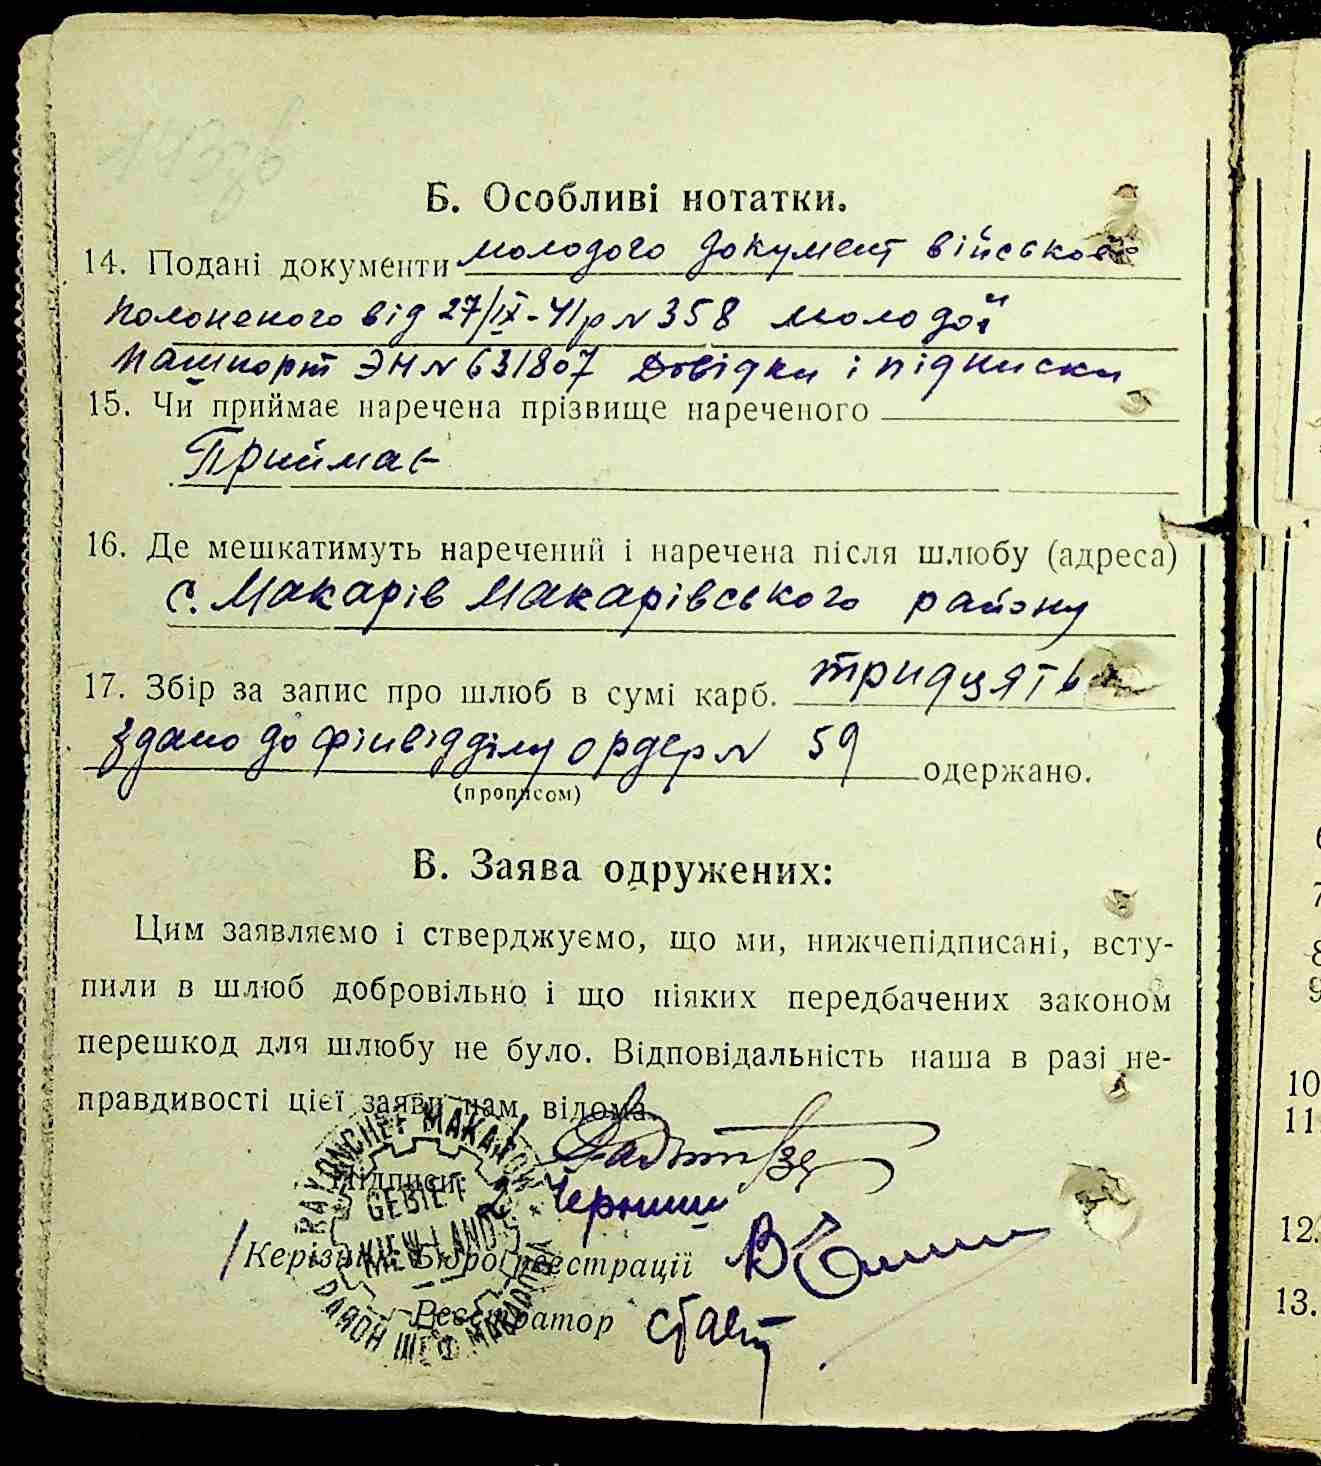 Б. Особливі нотатки.
14. Подані документи молодого документ військово
полоненого від 27/IX-41р № 358 молодої
пашпорт ЭН № 631807 Довідки і підписки
15. Чи приймає наречена прізвище нареченого
Приймає
16. Де мешкатимуть наречений і наречена після шлюбу (адреса)
с. Макарів Макарівського району
17. Збір за запис про шлюб в сумі карб. тридцять
здано до фінвідділу ордер № 59 одержано.
(прописом)
В. Заява одружених:
Цим заявляємо і стверджуємо, що ми, нижчепідписані, всту-
пили в шлюб добровільно і що ніяких передбачених законом
перешкод для шлюбу не було. Відповідальність наша в разі не-
правдивості цієї заяви нам відома.
Підписи: 1
2 Черниш
Керівник Бюро реєстрації
Реєстратор
RAYONCHEF MAKAROW
GEBIET
KIEW-LAND
РАЙОН ШЕФ МАКАРІВ
10
11
12.
13.